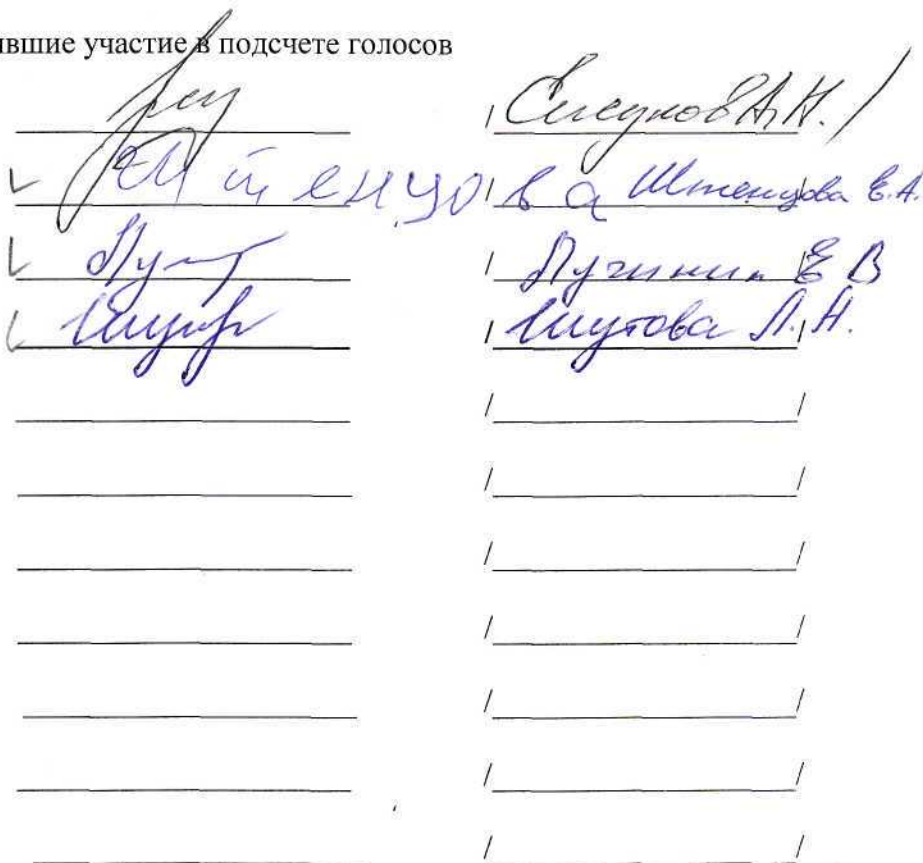 ившие участие в подсчете голосов
/ А.Н. /
Штенцова / Штенцова Е.А.
/ Пучинин Е В
/ Шутова Л.Н. /
/ /
/ /
/ /
/ /
/ /
/ /
/ /